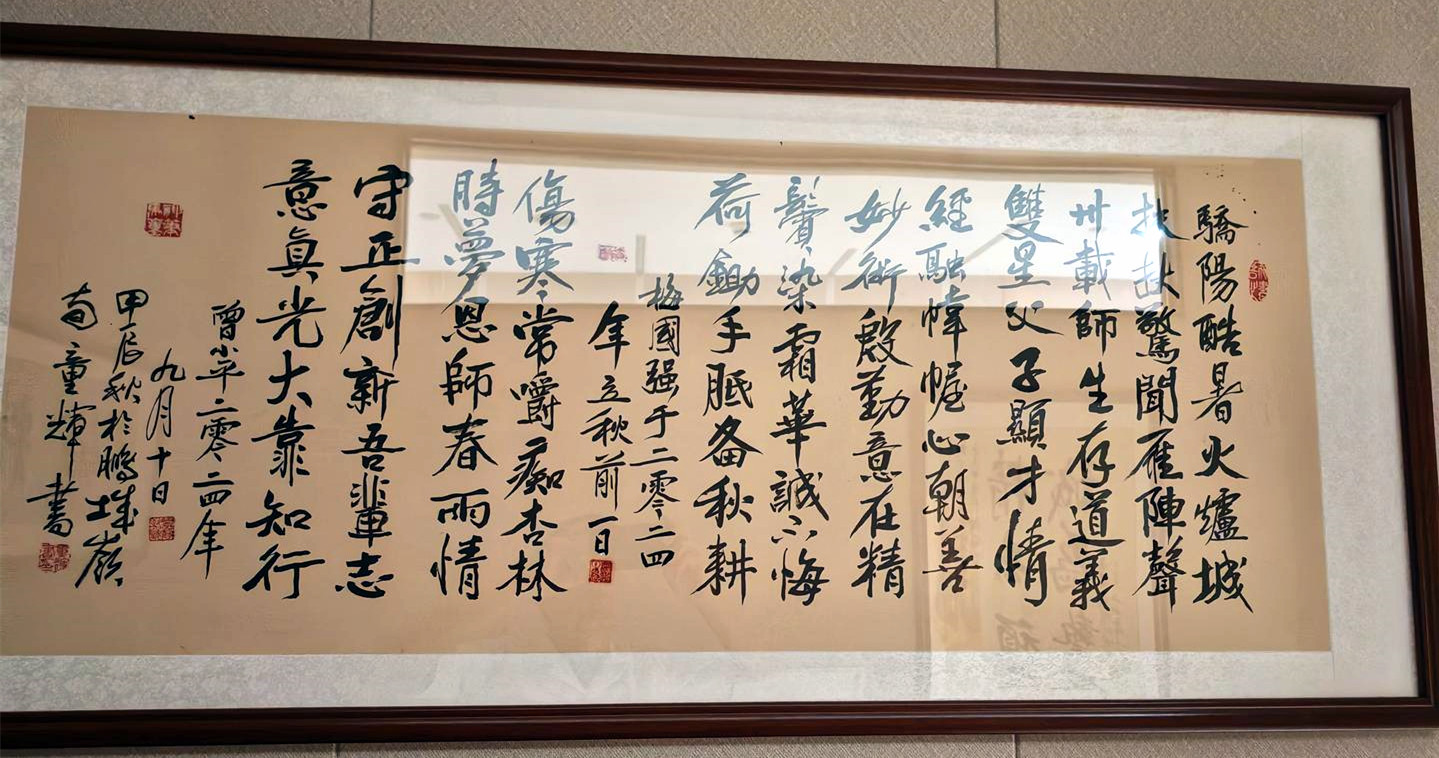 驕陽酷暑火爐城
驚聞雁陣聲
卅載師生存道義
雙星父子顯才情
經融幃幄心朝善
妙術殷勤意在精
鬢染霜華誠不悔
荷鋤手胝备秋耕
梅國强于二零二四
年立秋前一日
傷寒常嚼痴杏林
時夢恩師春雨情
守正創新吾輩志
意真光大靠知行
曾小平二零二四年
九月十日
甲辰秋於鵬城嶺
南童輝書